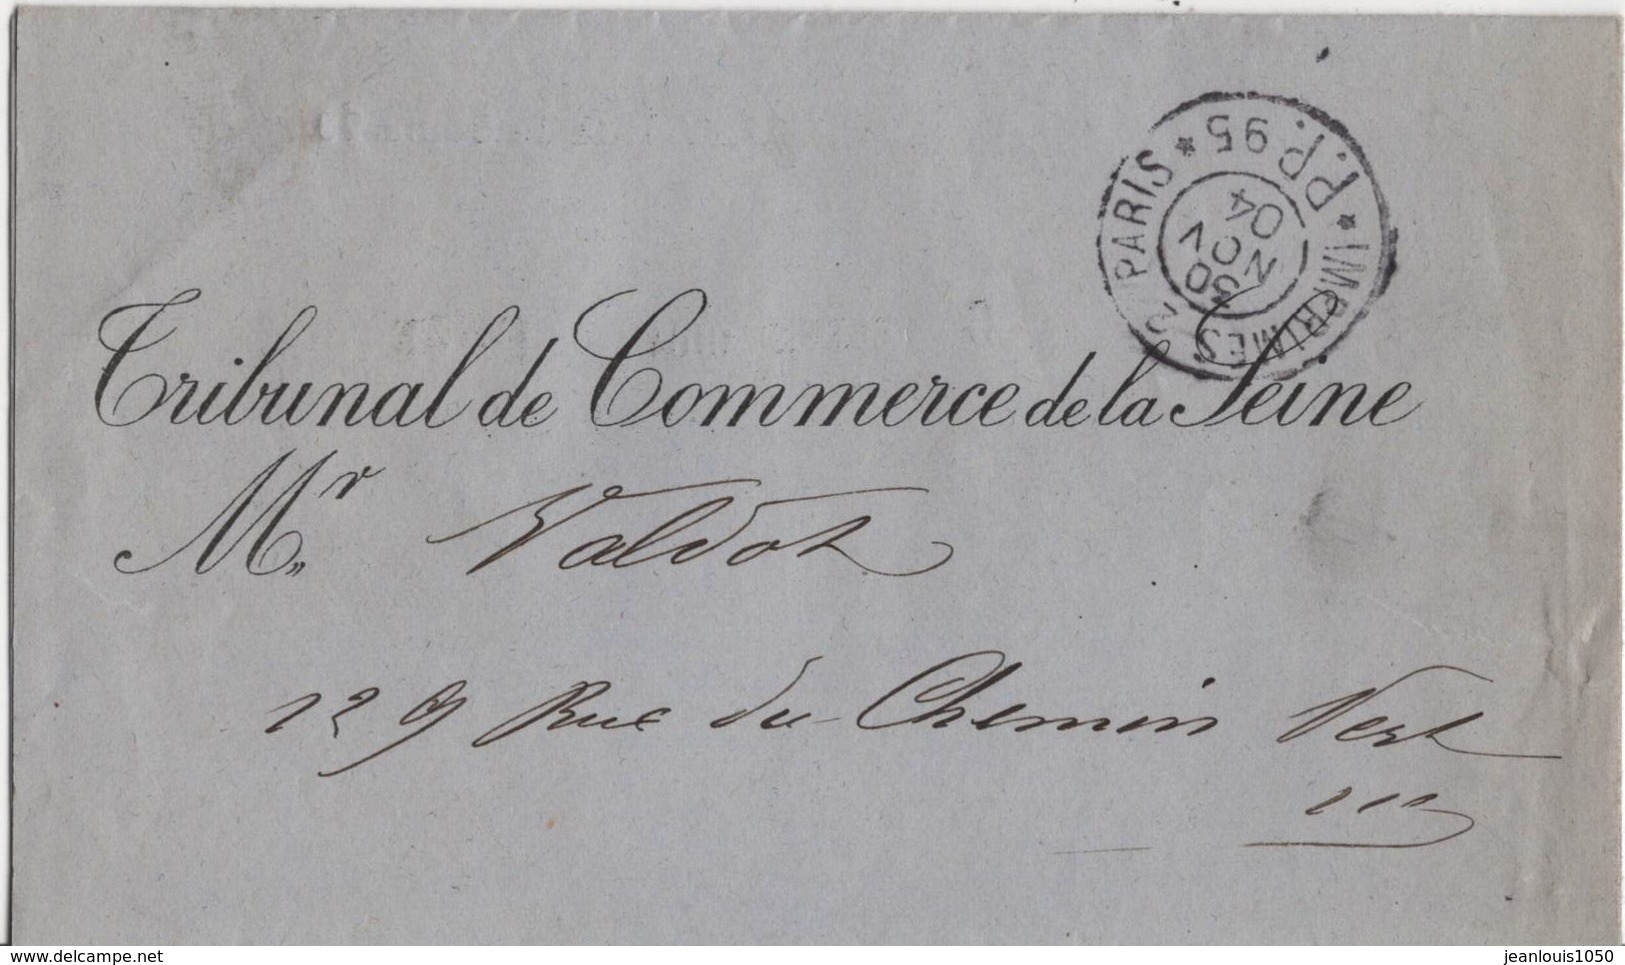 PARIS * P.P. 95 * IMPRIMÉS
30
NOV
04
Tribunal de Commerce de la Seine
Mr Valdot
129 Rue du Chemin Vert
delcampe.net
jeanlouis1050